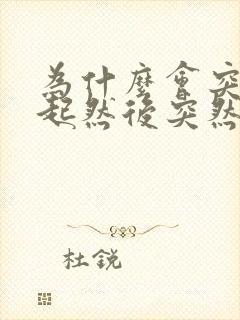 為什麼會突
起然後突然
杜銳